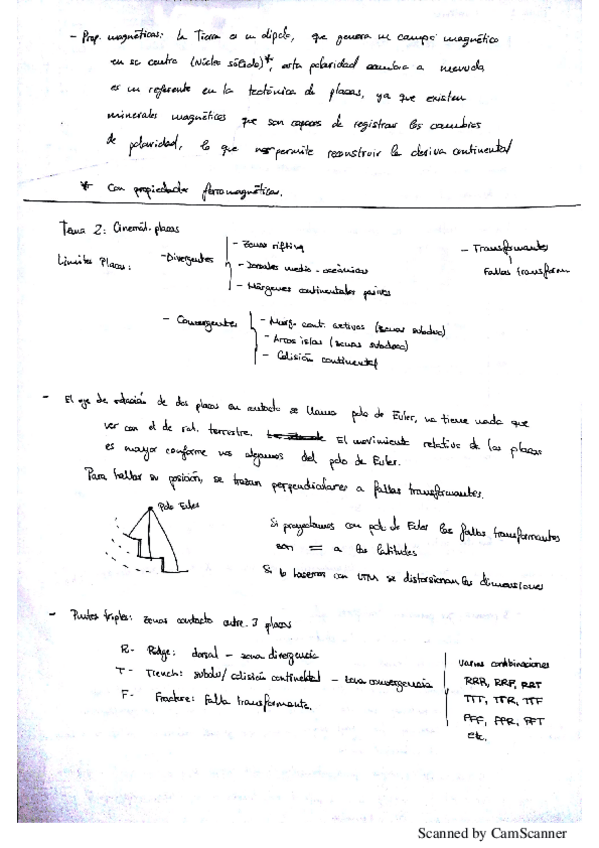 - Prop. magnéticas: la Tierra es un dipolo, que genera un campo magnético
en su centro (Núcleo sólido)*, esta polaridad cambia a menudo,
es un referente en la tectónica de placas, ya que existen
minerales magnéticos que son capaces de registrar los cambios
de polaridad, lo que nos permite reconstruir la deriva continental
* Con propiedades ferromagnéticas.
Tema 2: Cinemát. placas
Límites Placas:
- Divergentes
- Zonas rifting
- Dorsales medio-oceánicas
- Márgenes continentales pasivos
- Transformantes
Fallas transform
- Convergentes
- Marg. cont. activos (zonas subducc)
- Arcos islas (zonas subducc)
- Colisión continental
- El eje de rotación de dos placas en contacto se llama polo de Euler, no tiene nada que
ver con el de rot. terrestre. El movimiento relativo de las placas
es mayor conforme nos alejamos del polo de Euler.
Para hallar su posición, se trazan perpendiculares a fallas transformantes.
Polo Euler
Si proyectamos con polo de Euler las fallas transformantes
son = a las latitudes
Si lo hacemos con UTM se distorsionan las dimensiones
- Puntos triples: zonas contacto entre 3 placas
R- Ridge: dorsal - zona divergencia
T- Trench: subduc/ colisión continental - zona convergencia
F- Fracture: Falla transformante.
varias combinaciones
RRR, RRF, RRT
TTT, TTR, TTF
FFF, FFR, FFT
etc.
Scanned by CamScanner